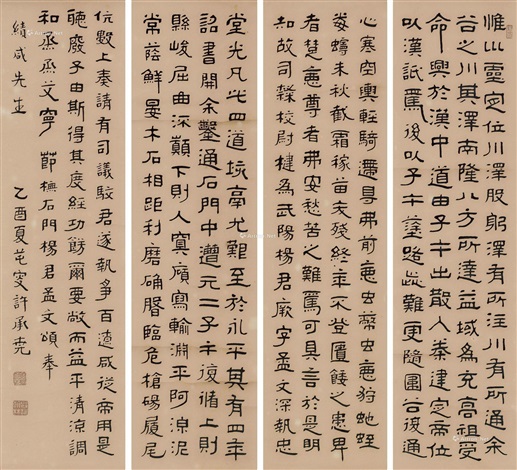 惟巛靈定位川澤股躬澤有所注川有所通余
谷之川其澤南隆八方所達益域為充高祖受
命興於漢中道由子午出散入秦建定帝位
以漢詆焉後以子午塗路歰難更隨圍谷復通
心寒空輿輕騎遰㝵弗前惡虫幣狩虵蛭
蟃未秋截霜稼苗夭殘終年不登匱餧之患卑
者楚惡尊者弗安愁苦之難焉可具言於是明
知故司隸校尉楗為武陽楊君厥字孟文深執忠
堂光凡此四道垓鬲尤艱至於永平其有四年
詔書開余鑿通石門中遭元二子午復循上則
縣峻屈曲深顛下則入冥廎寫輸淵平阿淖泥
常蔭鮮晏木石相距利磨确磐臨危槍碭履尾
伉數上奏請有司議駮君遂執爭百遼咸從帝用是
聽廢子由斯得其度經功飭爾要敞而益平清涼調
和烝烝艾寧 節橅石門楊君孟文頌奉
績咸先生 乙酉夏芚叟許承堯